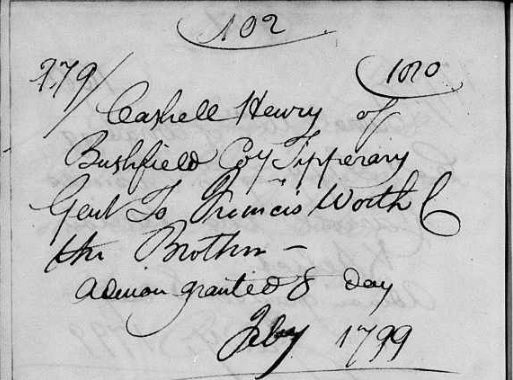 102
179/
1020
Cashell Henry of
Bushfield Coy Tipperary
Gent To Francis Worth C
the Brother –
Admon granted 8 day
Feby 1799